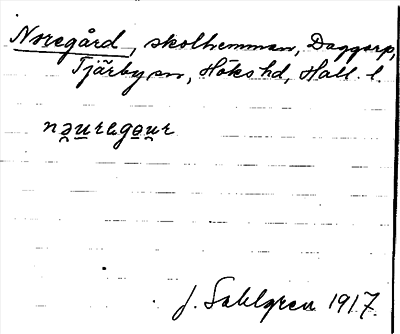 Noregård, skolhemman, Daggarp,
Tjärby sn, Höks hd, Hall. l.
nə̯u̲regəu̯r
J. Sahlgren 1917.